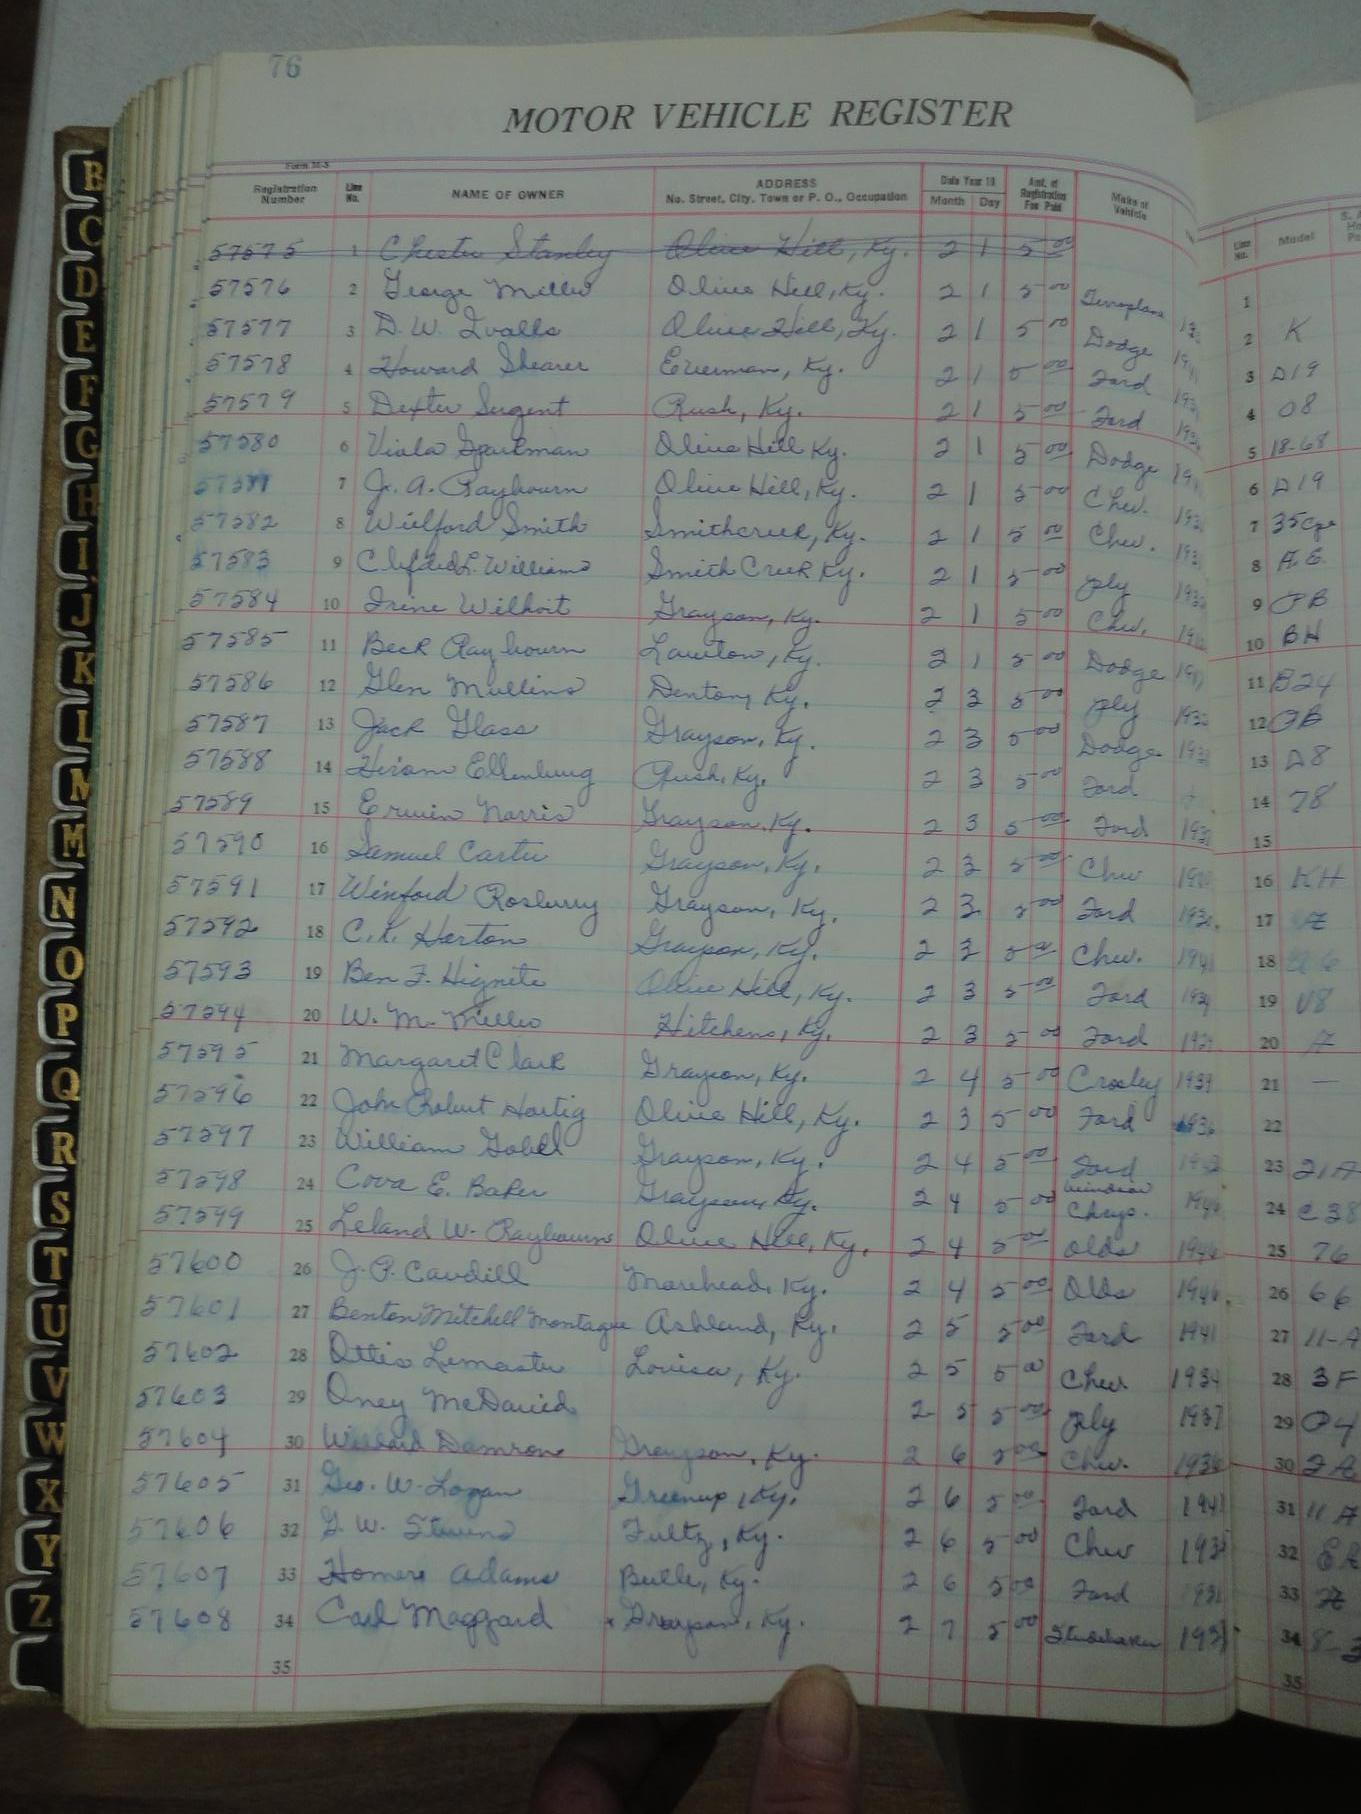 76
MOTOR VEHICLE REGISTER
Form M-5
Registration Number Line No. NAME OF OWNER ADDRESS No. Street, City, Town or P. O., Occupation Date Year 19 Month Day Amt. of Registration Fee Paid Make of Vehicle Line No. Model
57575 1 Chester Stanley Olive Hill, Ky. 2 1 5 00 1
57576 2 George Miller Olive Hill, Ky. 2 1 5 00 Terraplane 2 K
57577 3 D. W. Olive Hill, Ky. 2 1 5 00 Dodge 3 D19
57578 4 Howard Shearer Everman, Ky. 2 1 5 00 Ford 4 08
57579 5 Dexter Sergent Rush, Ky. 2 1 5 00 Ford 5 18-68
57580 6 Viola Sparkman Olive Hill Ky. 2 1 5 00 Dodge 6 D19
57581 7 J. A. Raybourn Olive Hill, Ky. 2 1 5 00 Chev. 7 35Cpe
57582 8 Wilford Smith Smithcreek, Ky. 2 1 5 00 Chev. 8
57583 9 L. Williams Smith Creek Ky. 2 1 5 00 Ply 9 PB
57584 10 Irene Wilhoit Grayson, Ky. 2 1 5 00 Chev. 10 BH
57585 11 Beck Raybourn Lawton, Ky. 2 1 5 00 Dodge 11 B24
57586 12 Glen Mullins Denton, Ky. 2 3 5 00 Ply 12 PB
57587 13 Jack Glass Grayson, Ky. 2 3 5 00 Dodge 13 D8
57588 14 Hiram Ellenburg Rush, Ky. 2 3 5 00 Ford 14 78
57589 15 Erwin Norris Grayson, Ky. 2 3 5 00 Ford 15
57590 16 Samuel Carter Grayson, Ky. 2 3 5 00 Chev 16 KH
57591 17 Winford Rosberry Grayson, Ky. 2 3 5 00 Ford 17 A
57592 18 C. K. Horton Grayson, Ky. 2 3 5 00 Chev. 1941 18
57593 19 Ben F. Hignite Olive Hill, Ky. 2 3 5 00 Ford 19 V8
57594 20 W. M. Miller Hitchens, Ky. 2 3 5 00 Ford 1929 20 A
57595 21 Margaret Clark Grayson, Ky. 2 4 5 00 Crosley 1939 21 —
57596 22 John Robert Hartig Olive Hill, Ky. 2 3 5 00 Ford 1936 22
57597 23 William Gobel Grayson, Ky. 2 4 5 00 Ford 1942 23 21A
57598 24 Cova E. Baker Grayson, Ky. 2 4 5 00 Windsor Chrys. 1946 24 C38
57599 25 Leland W. Raybourn Olive Hill, Ky. 2 4 5 00 Olds 1946 25 76
57600 26 J. P. Caudill Morehead, Ky. 2 4 5 00 Olds 1946 26 66
57601 27 Benton Mitchell Montague Ashland, Ky. 2 5 5 00 Ford 1941 27 11-A
57602 28 Ottis Lemaster Louisa, Ky. 2 5 5 00 Chev 1934 28 3F
57603 29 Oney McDavid 2 5 5 00 Ply 1937 29 P4
57604 30 Willard Damron Grayson, Ky. 2 6 5 00 Chev. 1936 30
57605 31 Geo. W. Logan Greenup, Ky. 2 6 5 00 Ford 1941 31 11 A
57606 32 G. W. Stevens Fultz, Ky. 2 6 5 00 Chev 1935 32
57607 33 Homer Adams Beetle, Ky. 2 6 5 00 Ford 1931 33 A
57608 34 Carl Maggard Grayson, Ky. 2 7 5 00 Studebaker 34
35 35
B
C
D
E
F
G
H
I
J
K
L
M
M
N
O
P
Q
R
S
T
U
V
W
X
Y
Z